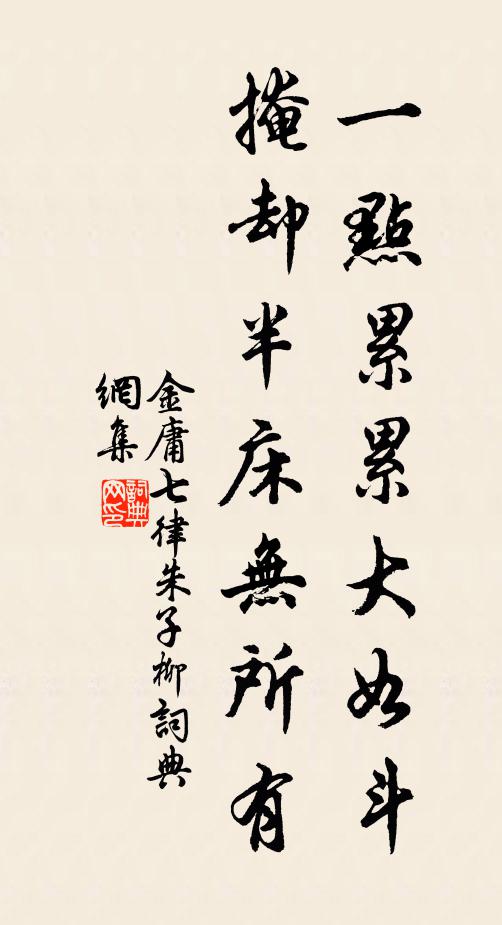 一點累累大如斗
掩却半床無所有
金庸七律朱子柳詞典
網集
詞典
网印